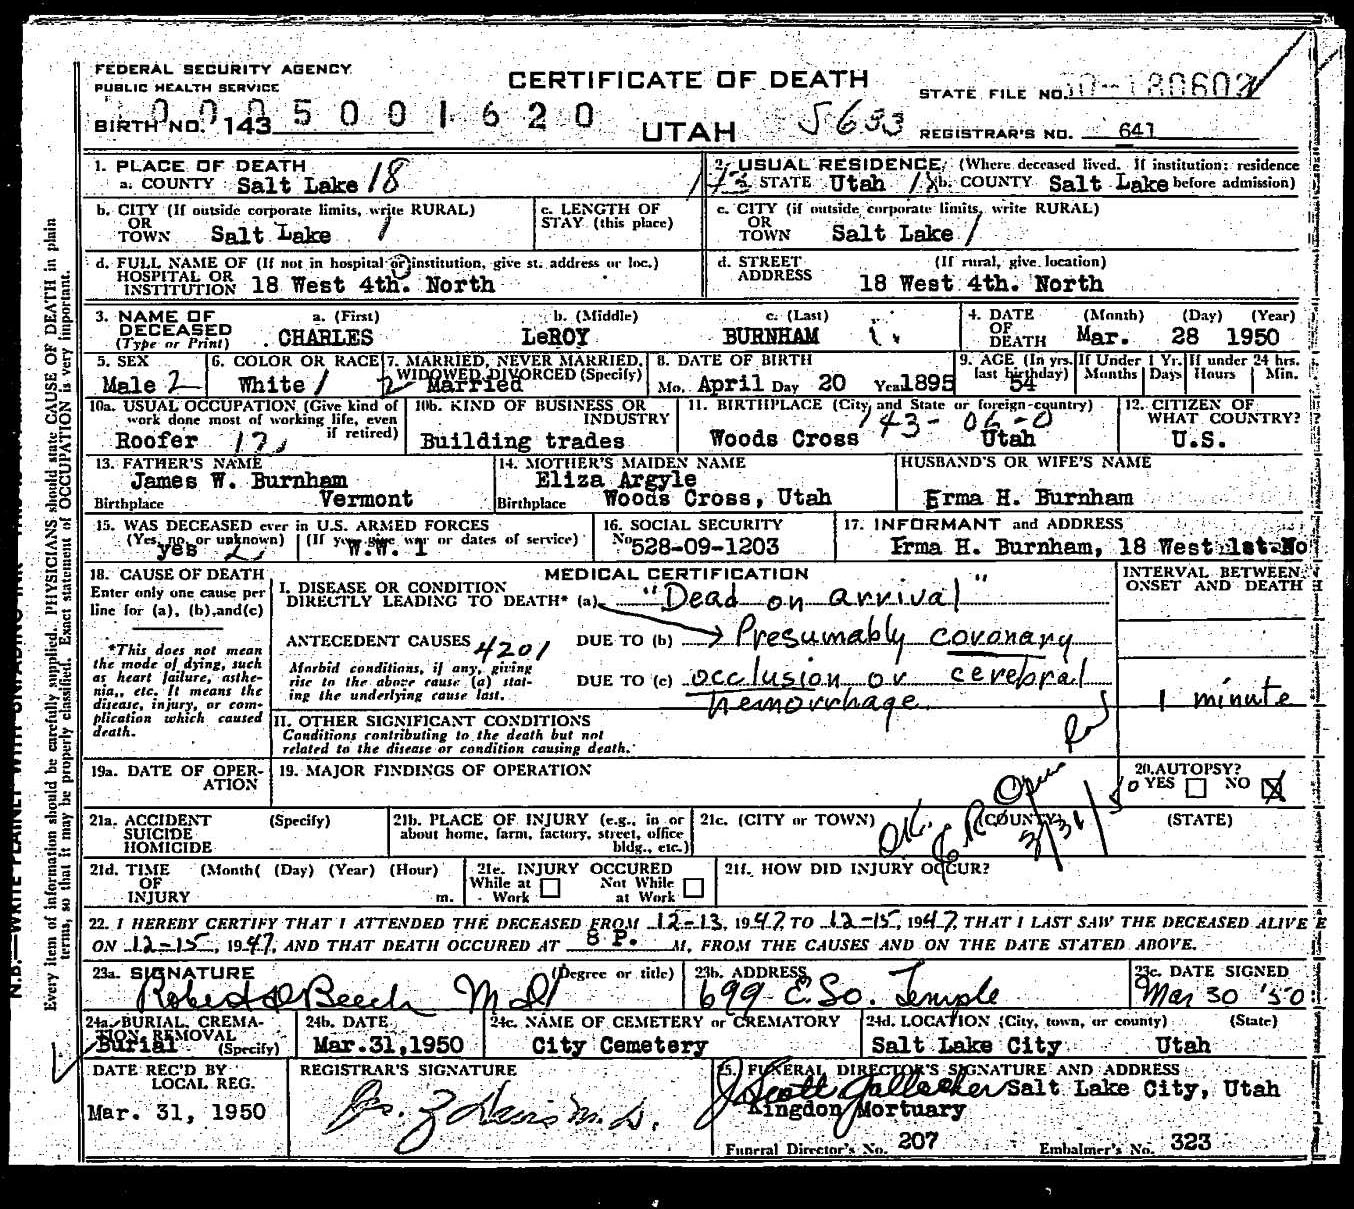 FEDERAL SECURITY AGENCY
PUBLIC HEALTH SERVICE
CERTIFICATE OF DEATH
STATE FILE NO.
BIRTH NO. 143
5001620
UTAH
5633
REGISTRAR'S NO. 641
1. PLACE OF DEATH
a. COUNTY Salt Lake 18
2. USUAL RESIDENCE (Where deceased lived. If institution: residence
STATE Utah b. COUNTY Salt Lake before admission)
b. CITY (If outside corporate limits, write RURAL)
OR
TOWN Salt Lake 1
c. LENGTH OF
STAY (this place)
c. CITY (if outside corporate limits, write RURAL)
OR
TOWN Salt Lake 1
d. FULL NAME OF (If not in hospital or institution, give st. address or loc.)
HOSPITAL OR
INSTITUTION 18 West 4th. North
d. STREET (If rural, give location)
ADDRESS
18 West 4th. North
3. NAME OF a. (First) b. (Middle) c. (Last)
DECEASED
(Type or Print) CHARLES LeROY BURNHAM
4. DATE (Month) (Day) (Year)
OF
DEATH Mar. 28 1950
5. SEX
Male 2
6. COLOR OR RACE
White 1
7. MARRIED, NEVER MARRIED,
WIDOWED DIVORCED (Specify)
2 Married
8. DATE OF BIRTH
Mo. April Day 20 Year 1895
9. AGE (In yrs. last birthday) 54
If Under 1 Yr. Months Days
If under 24 hrs. Hours Min.
10a. USUAL OCCUPATION (Give kind of
work done most of working life, even
if retired)
Roofer
10b. KIND OF BUSINESS OR
INDUSTRY
Building trades
11. BIRTHPLACE (City and State or foreign country)
143-06-0
Woods Cross Utah
12. CITIZEN OF
WHAT COUNTRY?
U.S.
13. FATHER'S NAME
James W. Burnham
Birthplace Vermont
14. MOTHER'S MAIDEN NAME
Eliza Argyle
Birthplace Woods Cross, Utah
HUSBAND'S OR WIFE'S NAME
Erma H. Burnham
15. WAS DECEASED ever in U.S. ARMED FORCES
(Yes, no, or unknown) (If yes, give war or dates of service)
yes W.W. 1
16. SOCIAL SECURITY
No. 528-09-1203
17. INFORMANT and ADDRESS
Erma H. Burnham, 18 West 1st No
18. CAUSE OF DEATH
Enter only one cause per
line for (a), (b), and (c)
*This does not mean
the mode of dying, such
as heart failure, asthe-
nia, etc. It means the
disease, injury, or com-
plication which caused
death.
MEDICAL CERTIFICATION
I. DISEASE OR CONDITION
DIRECTLY LEADING TO DEATH* (a) "Dead on arrival"
ANTECEDENT CAUSES 4201 DUE TO (b) Presumably coronary
Morbid conditions, if any, giving
rise to the above cause (a) stat-
ing the underlying cause last.
DUE TO (c) occlusion or cerebral
hemorrhage
INTERVAL BETWEEN
ONSET AND DEATH
1 minute
II. OTHER SIGNIFICANT CONDITIONS
Conditions contributing to the death but not
related to the disease or condition causing death.
19a. DATE OF OPER-
ATION
19. MAJOR FINDINGS OF OPERATION
20. AUTOPSY?
YES NO X
21a. ACCIDENT (Specify)
SUICIDE
HOMICIDE
21b. PLACE OF INJURY (e.g., in or
about home, farm, factory, street, office
bldg., etc.)
21c. (CITY OR TOWN) (COUNTY) (STATE)
O.K. 3/31/50
21d. TIME (Month) (Day) (Year) (Hour)
OF
INJURY m.
21e. INJURY OCCURED
While at Work Not While at Work
21f. HOW DID INJURY OCCUR?
22. I HEREBY CERTIFY THAT I ATTENDED THE DECEASED FROM 12-13, 1947, TO 12-15, 1947, THAT I LAST SAW THE DECEASED ALIVE
ON 12-15, 1947, AND THAT DEATH OCCURED AT 8 P. M, FROM THE CAUSES AND ON THE DATE STATED ABOVE.
23a. SIGNATURE (Degree or title)
Robert D Beech M.D.
23b. ADDRESS
699 E. So. Temple
23c. DATE SIGNED
Mar 30 '50
24a. BURIAL, CREMA-
TION, REMOVAL
Burial (Specify)
24b. DATE
Mar.31,1950
24c. NAME OF CEMETERY or CREMATORY
City Cemetery
24d. LOCATION (City, town, or county) (State)
Salt Lake City Utah
DATE REC'D BY
LOCAL REG.
Mar. 31, 1950
REGISTRAR'S SIGNATURE
25. FUNERAL DIRECTOR'S SIGNATURE AND ADDRESS
J Scott Gallacher Salt Lake City, Utah
Kingdon Mortuary
Funeral Director's No. 207 Embalmer's No. 323
Every item of information should be carefully supplied. PHYSICIANS should state CAUSE OF DEATH in plain
terms, so that it may be properly classified. Exact statement of OCCUPATION is very important.